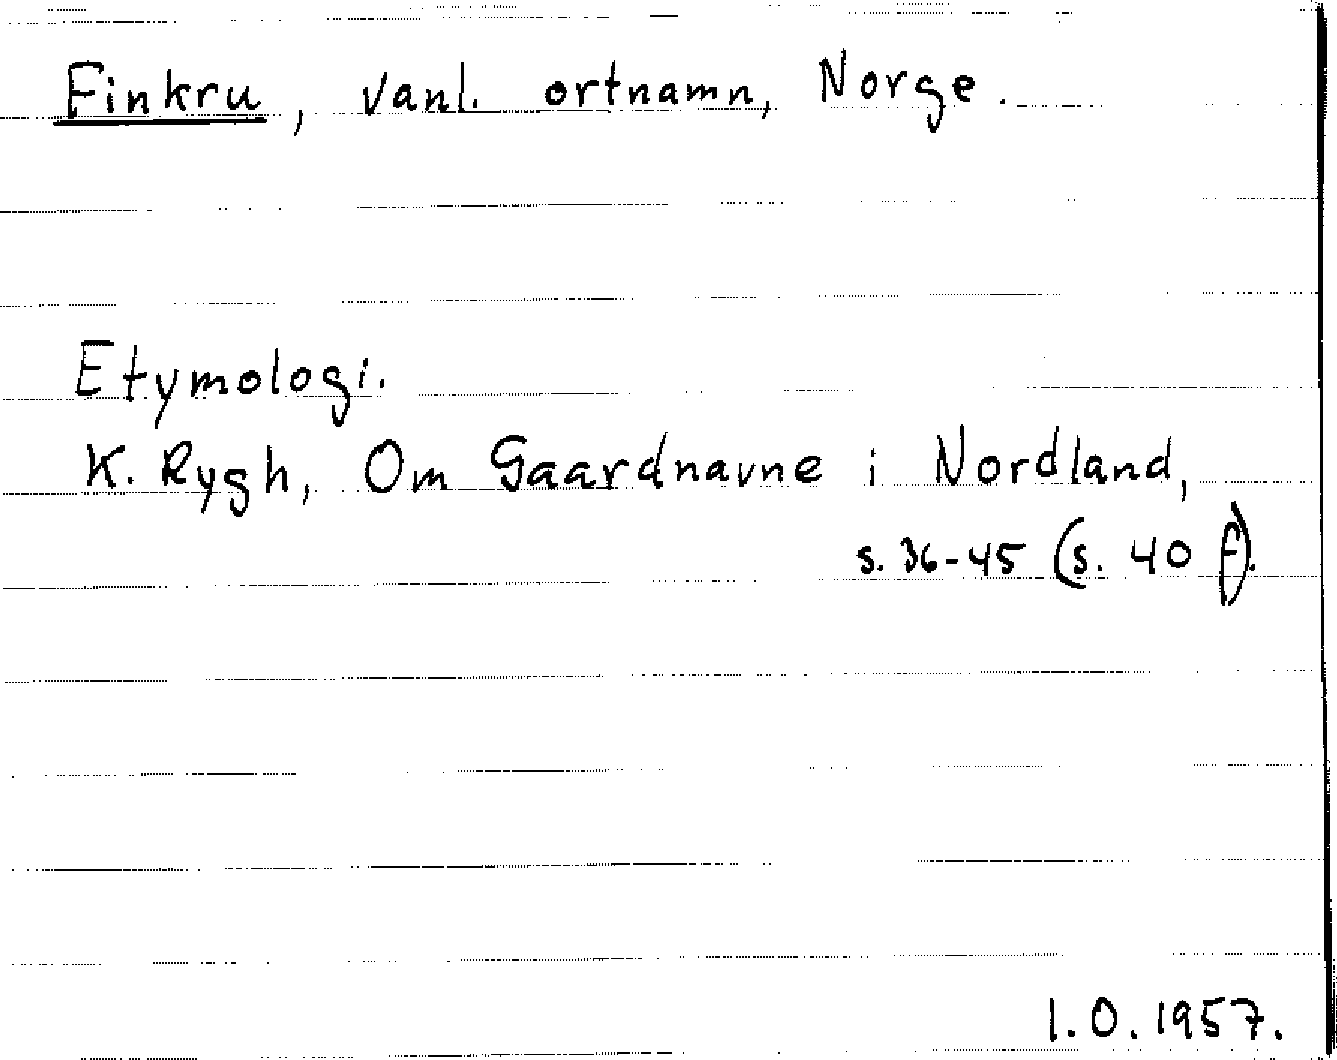 Finkru, vanl. ortnamn, Norge.
Etymologi.
K. Rygh, Om Gaardnavne i Nordland,
s. 36-45 (s. 40 f).
I.O. 1957.